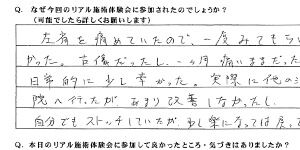 Q. なぜ今回のリアル施術体験会に参加されたのでしょうか?
(可能でしたら詳しくお願いします)
左肩を痛めていたので、一度みてもらい
かった。古傷だったし、一ヶ月痛いままだった
日常的に少し辛かった。実際に他の
院へ行ったが あまり改善しなかったし、
自分でもストッチしていたが、少し楽になっては戻って
Q. 本日のリアル施術体験会に参加して良かったところ・気づきはありましたか?